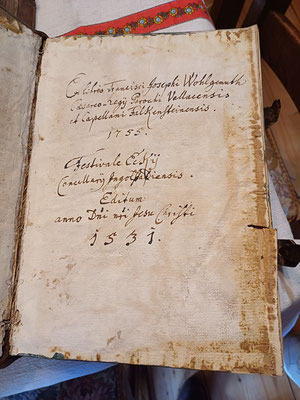 Ex libris Francisci Josephi Wohlgemuth
Caesareo-Regij Parochi Vallacensis
et Capellani Falkensteinensis.
1755.
Festivale Eckij
Cancellarij Ingolstadiensis.
Editum
anno Dni nri Jesu Christi
1531.